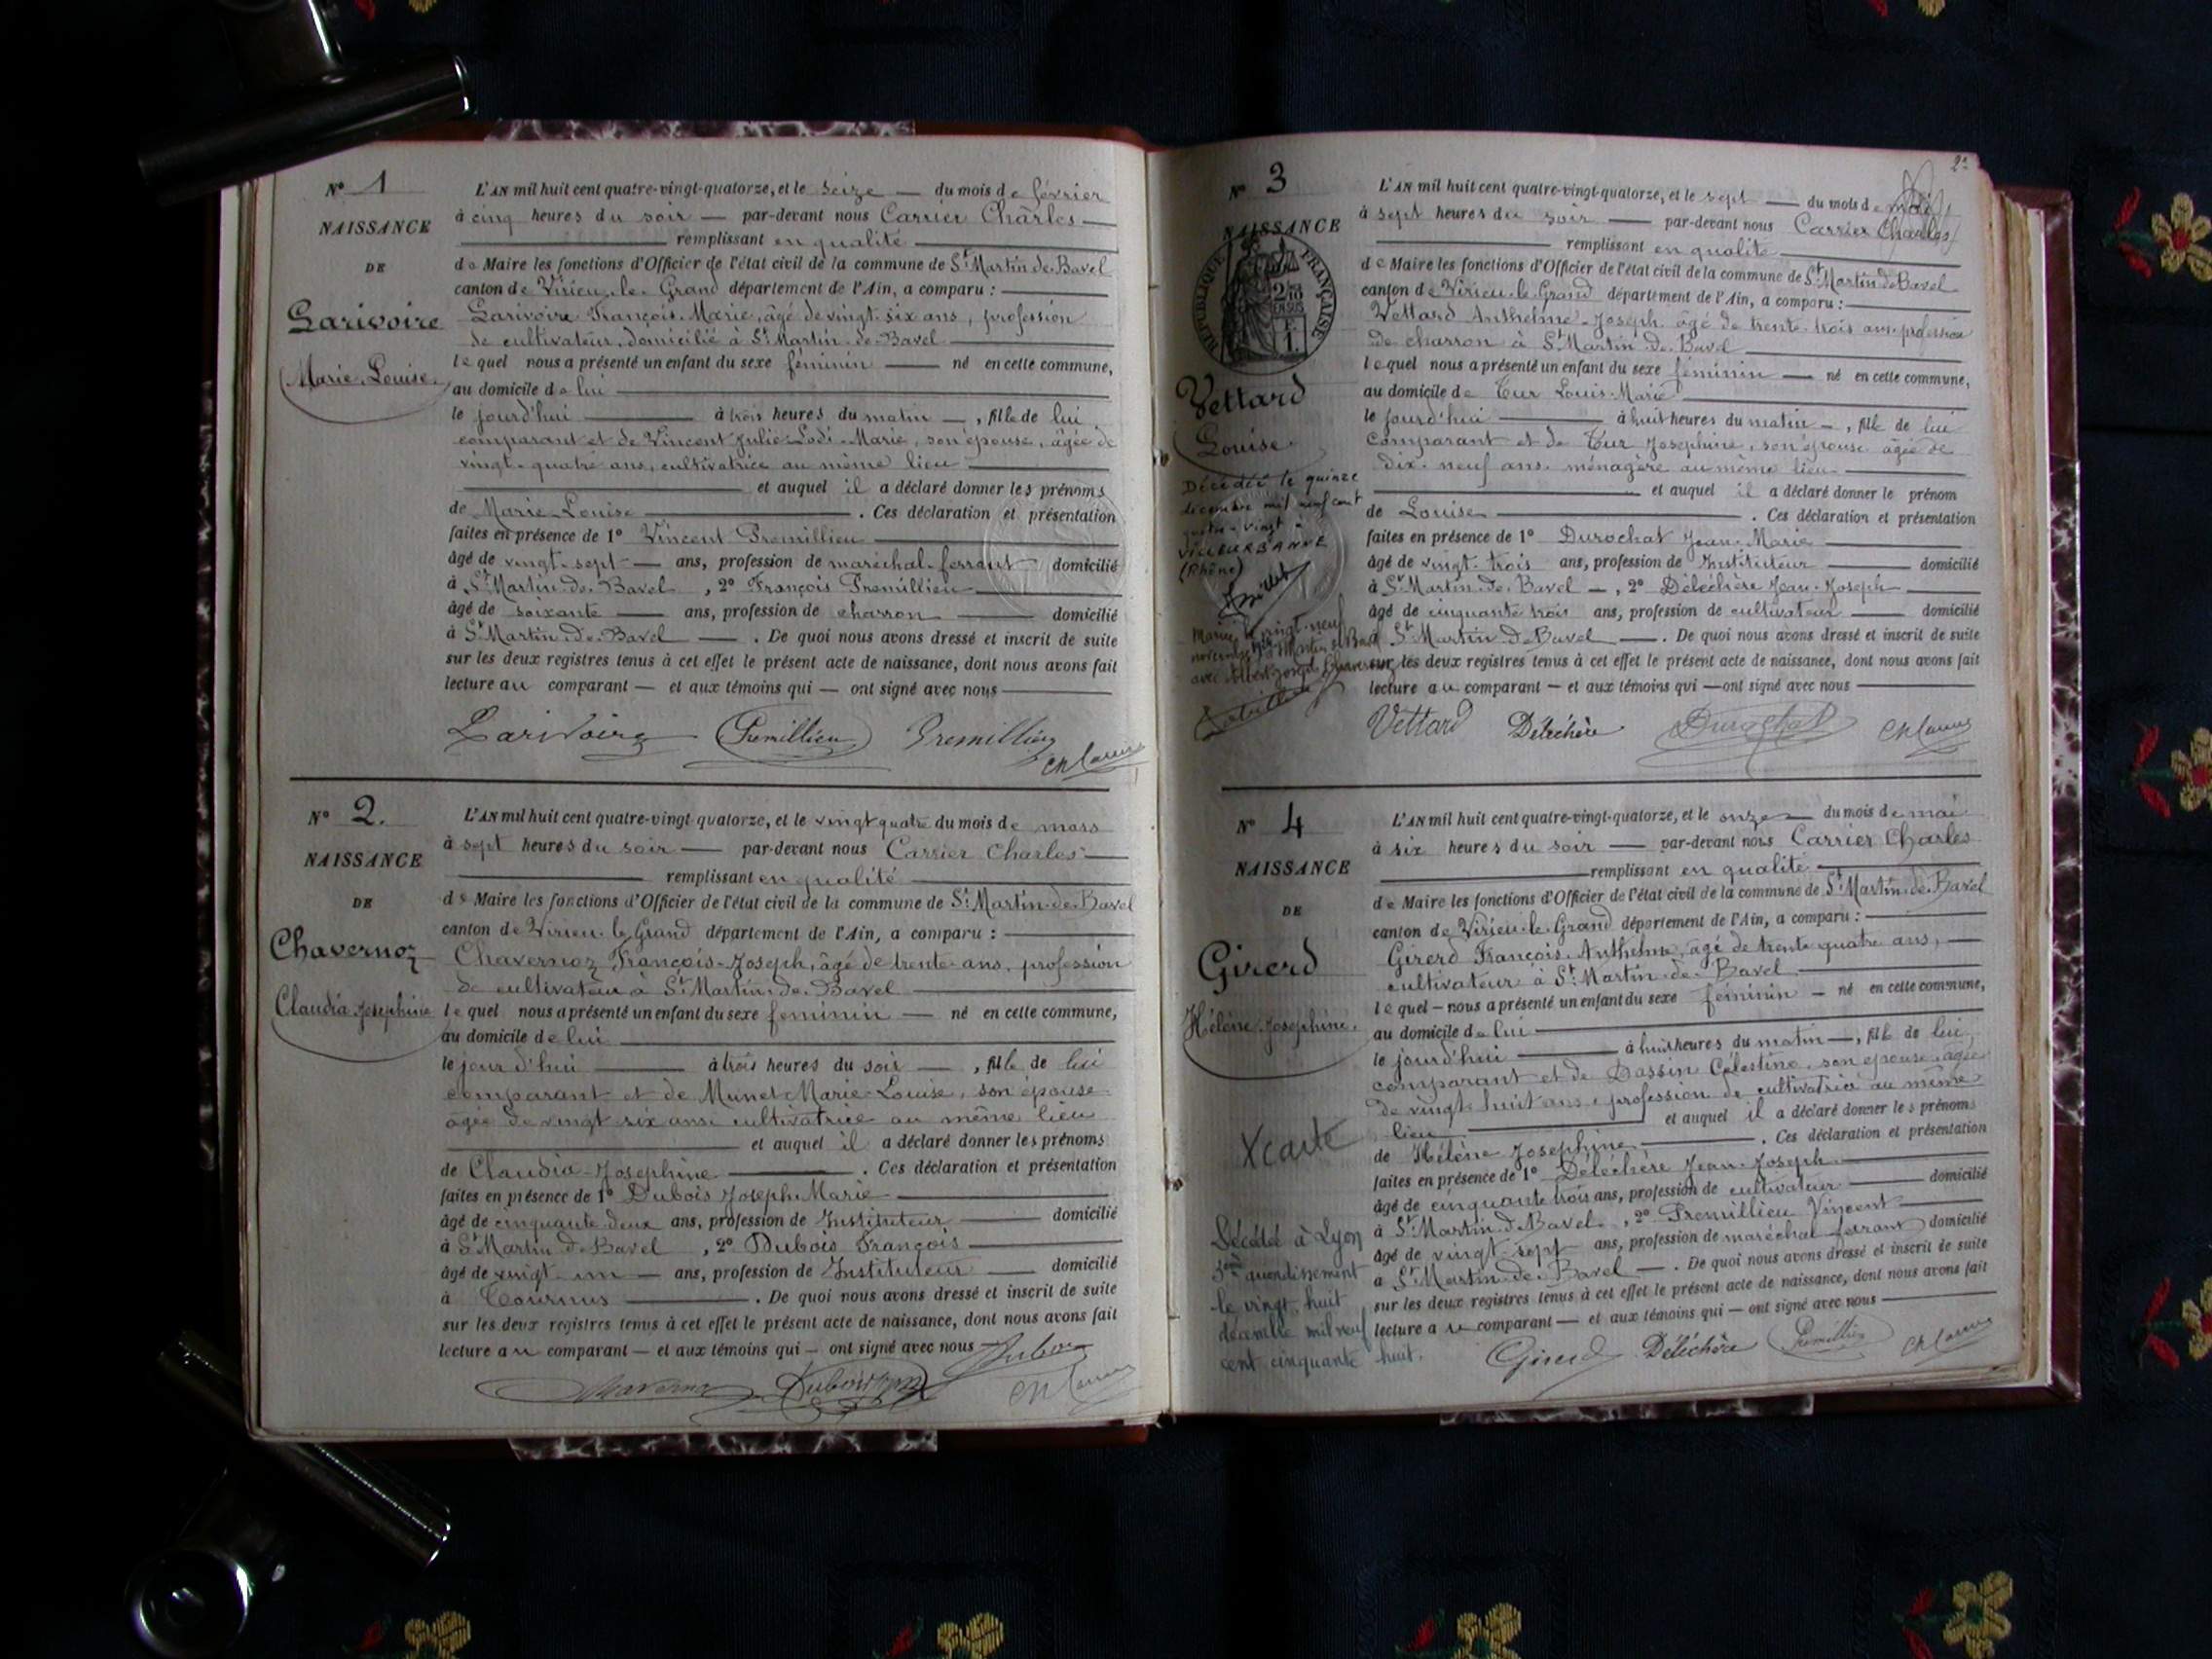 N° 1
NAISSANCE
DE
Larivoire
Marie-Louise.
L'AN mil huit cent quatre-vingt-quatorze, et le seize — du mois de février
à cinq heures du soir — par-devant nous Carrier Charles
remplissant en qualité
de Maire les fonctions d'Officier de l'état civil de la commune de St Martin-de-Bavel
canton de Virieu-le-Grand département de l'Ain, a comparu :
Larivoire François-Marie, âgé de vingt-six ans, profession
de cultivateur, domicilié à St Martin-de-Bavel
lequel nous a présenté un enfant du sexe féminin — né en cette commune,
au domicile de lui
le jourd'hui — à trois heures du matin —, fille de lui
comparant et de Vincent Julie-Lodi-Marie, son épouse, âgée de
vingt-quatre ans, cultivatrice au même lieu
et auquel il a déclaré donner les prénoms
de Marie-Louise . Ces déclaration et présentation
faites en présence de 1° Vincent Premillieu
âgé de vingt-sept — ans, profession de maréchal-ferrant domicilié
à St Martin-de-Bavel, 2° François Premillieu
âgé de soixante — ans, profession de charron domicilié
à St Martin-de-Bavel — . De quoi nous avons dressé et inscrit de suite
sur les deux registres tenus à cet effet le présent acte de naissance, dont nous avons fait
lecture au comparant — et aux témoins qui — ont signé avec nous
Larivoire Premillieu Premillieu
N° 2.
NAISSANCE
DE
Chavernoz
Claudia Josephine
L'AN mil huit cent quatre-vingt-quatorze, et le vingt quatre du mois de mars
à sept heures du soir — par-devant nous Carrier Charles
remplissant en qualité
de Maire les fonctions d'Officier de l'état civil de la commune de St Martin-de-Bavel
canton de Virieu-le-Grand département de l'Ain, a comparu :
Chavernoz François-Joseph, âgé de trente ans, profession
de cultivateur à St Martin-de-Bavel
lequel nous a présenté un enfant du sexe féminin — né en cette commune,
au domicile de lui
le jour d'hui — à trois heures du soir —, fille de lui
comparant et de Munet Marie-Louise, son épouse
âgée de vingt six ans cultivatrice au même lieu
et auquel il a déclaré donner les prénoms
de Claudia-Josephine . Ces déclaration et présentation
faites en présence de 1° Dubois Joseph-Marie
âgé de cinquante deux ans, profession de Instituteur domicilié
à St Martin-de-Bavel, 2° Dubois François
âgé de vingt-un — ans, profession de Instituteur domicilié
à Tournus . De quoi nous avons dressé et inscrit de suite
sur les deux registres tenus à cet effet le présent acte de naissance, dont nous avons fait
lecture au comparant — et aux témoins qui — ont signé avec nous Dubois
Chavernoz Dubois
2
N° 3
NAISSANCE
RÉPUBLIQUE FRANÇAISE
Vettard
Louise.
Décédée le quinze
décembre mil neuf cent
quatre-vingt à
VILLEURBANNE
(Rhône)
L'AN mil huit cent quatre-vingt-quatorze, et le sept — du mois de mai
à sept heures du soir — par-devant nous Carrier Charles
remplissant en qualité
de Maire les fonctions d'Officier de l'état civil de la commune de St Martin-de-Bavel
canton de Virieu-le-Grand département de l'Ain, a comparu :
Vettard Anthelme-Joseph âgé de trente-trois ans, profession
de charron à St Martin-de-Bavel
lequel nous a présenté un enfant du sexe féminin — né en cette commune,
au domicile de Tur Louis-Marie
le jourd'hui — à huit heures du matin —, fille de lui
comparant et de Tur Josephine, son épouse âgée de
dix-neuf ans, ménagère au même lieu
et auquel il a déclaré donner le prénom
de Louise . Ces déclaration et présentation
faites en présence de 1° Durochat Jean-Marie
âgé de vingt-trois ans, profession de Instituteur domicilié
à St Martin-de-Bavel —, 2° Déléchère Jean-Joseph
âgé de cinquante trois ans, profession de cultivateur domicilié
St Martin-de-Bavel — . De quoi nous avons dressé et inscrit de suite
sur les deux registres tenus à cet effet le présent acte de naissance, dont nous avons fait
lecture au comparant — et aux témoins qui — ont signé avec nous
Vettard Déléchère Durochat
N° 4
NAISSANCE
DE
Girerd
Hélène-Josephine.
X carte
Décédée à Lyon
3ème arrondissement
le vingt-huit
décembre mil neuf
cent cinquante huit.
L'AN mil huit cent quatre-vingt-quatorze, et le onze du mois de mai
à six heures du soir — par-devant nous Carrier Charles
remplissant en qualité
de Maire les fonctions d'Officier de l'état civil de la commune de St Martin-de-Bavel
canton de Virieu-le-Grand département de l'Ain, a comparu :
Girerd François-Anthelme, âgé de trente quatre ans,
cultivateur à St Martin-de-Bavel
lequel — nous a présenté un enfant du sexe féminin — né en cette commune,
au domicile de lui
le jourd'hui — à huit heures du matin —, fille de lui
comparant et de Bassin Célestine, son épouse âgée
de vingt-huit ans, profession de cultivatrice au même
lieu et auquel il a déclaré donner les prénoms
de Hélène Josephine . Ces déclaration et présentation
faites en présence de 1° Déléchère Jean-Joseph
âgé de cinquante trois ans, profession de cultivateur domicilié
à St Martin-de-Bavel, 2° Premillieu Vincent
âgé de vingt-sept ans, profession de maréchal ferrant domicilié
à St Martin-de-Bavel — . De quoi nous avons dressé et inscrit de suite
sur les deux registres tenus à cet effet le présent acte de naissance, dont nous avons fait
lecture au comparant — et aux témoins qui — ont signé avec nous
Girerd Déléchère Premillieu